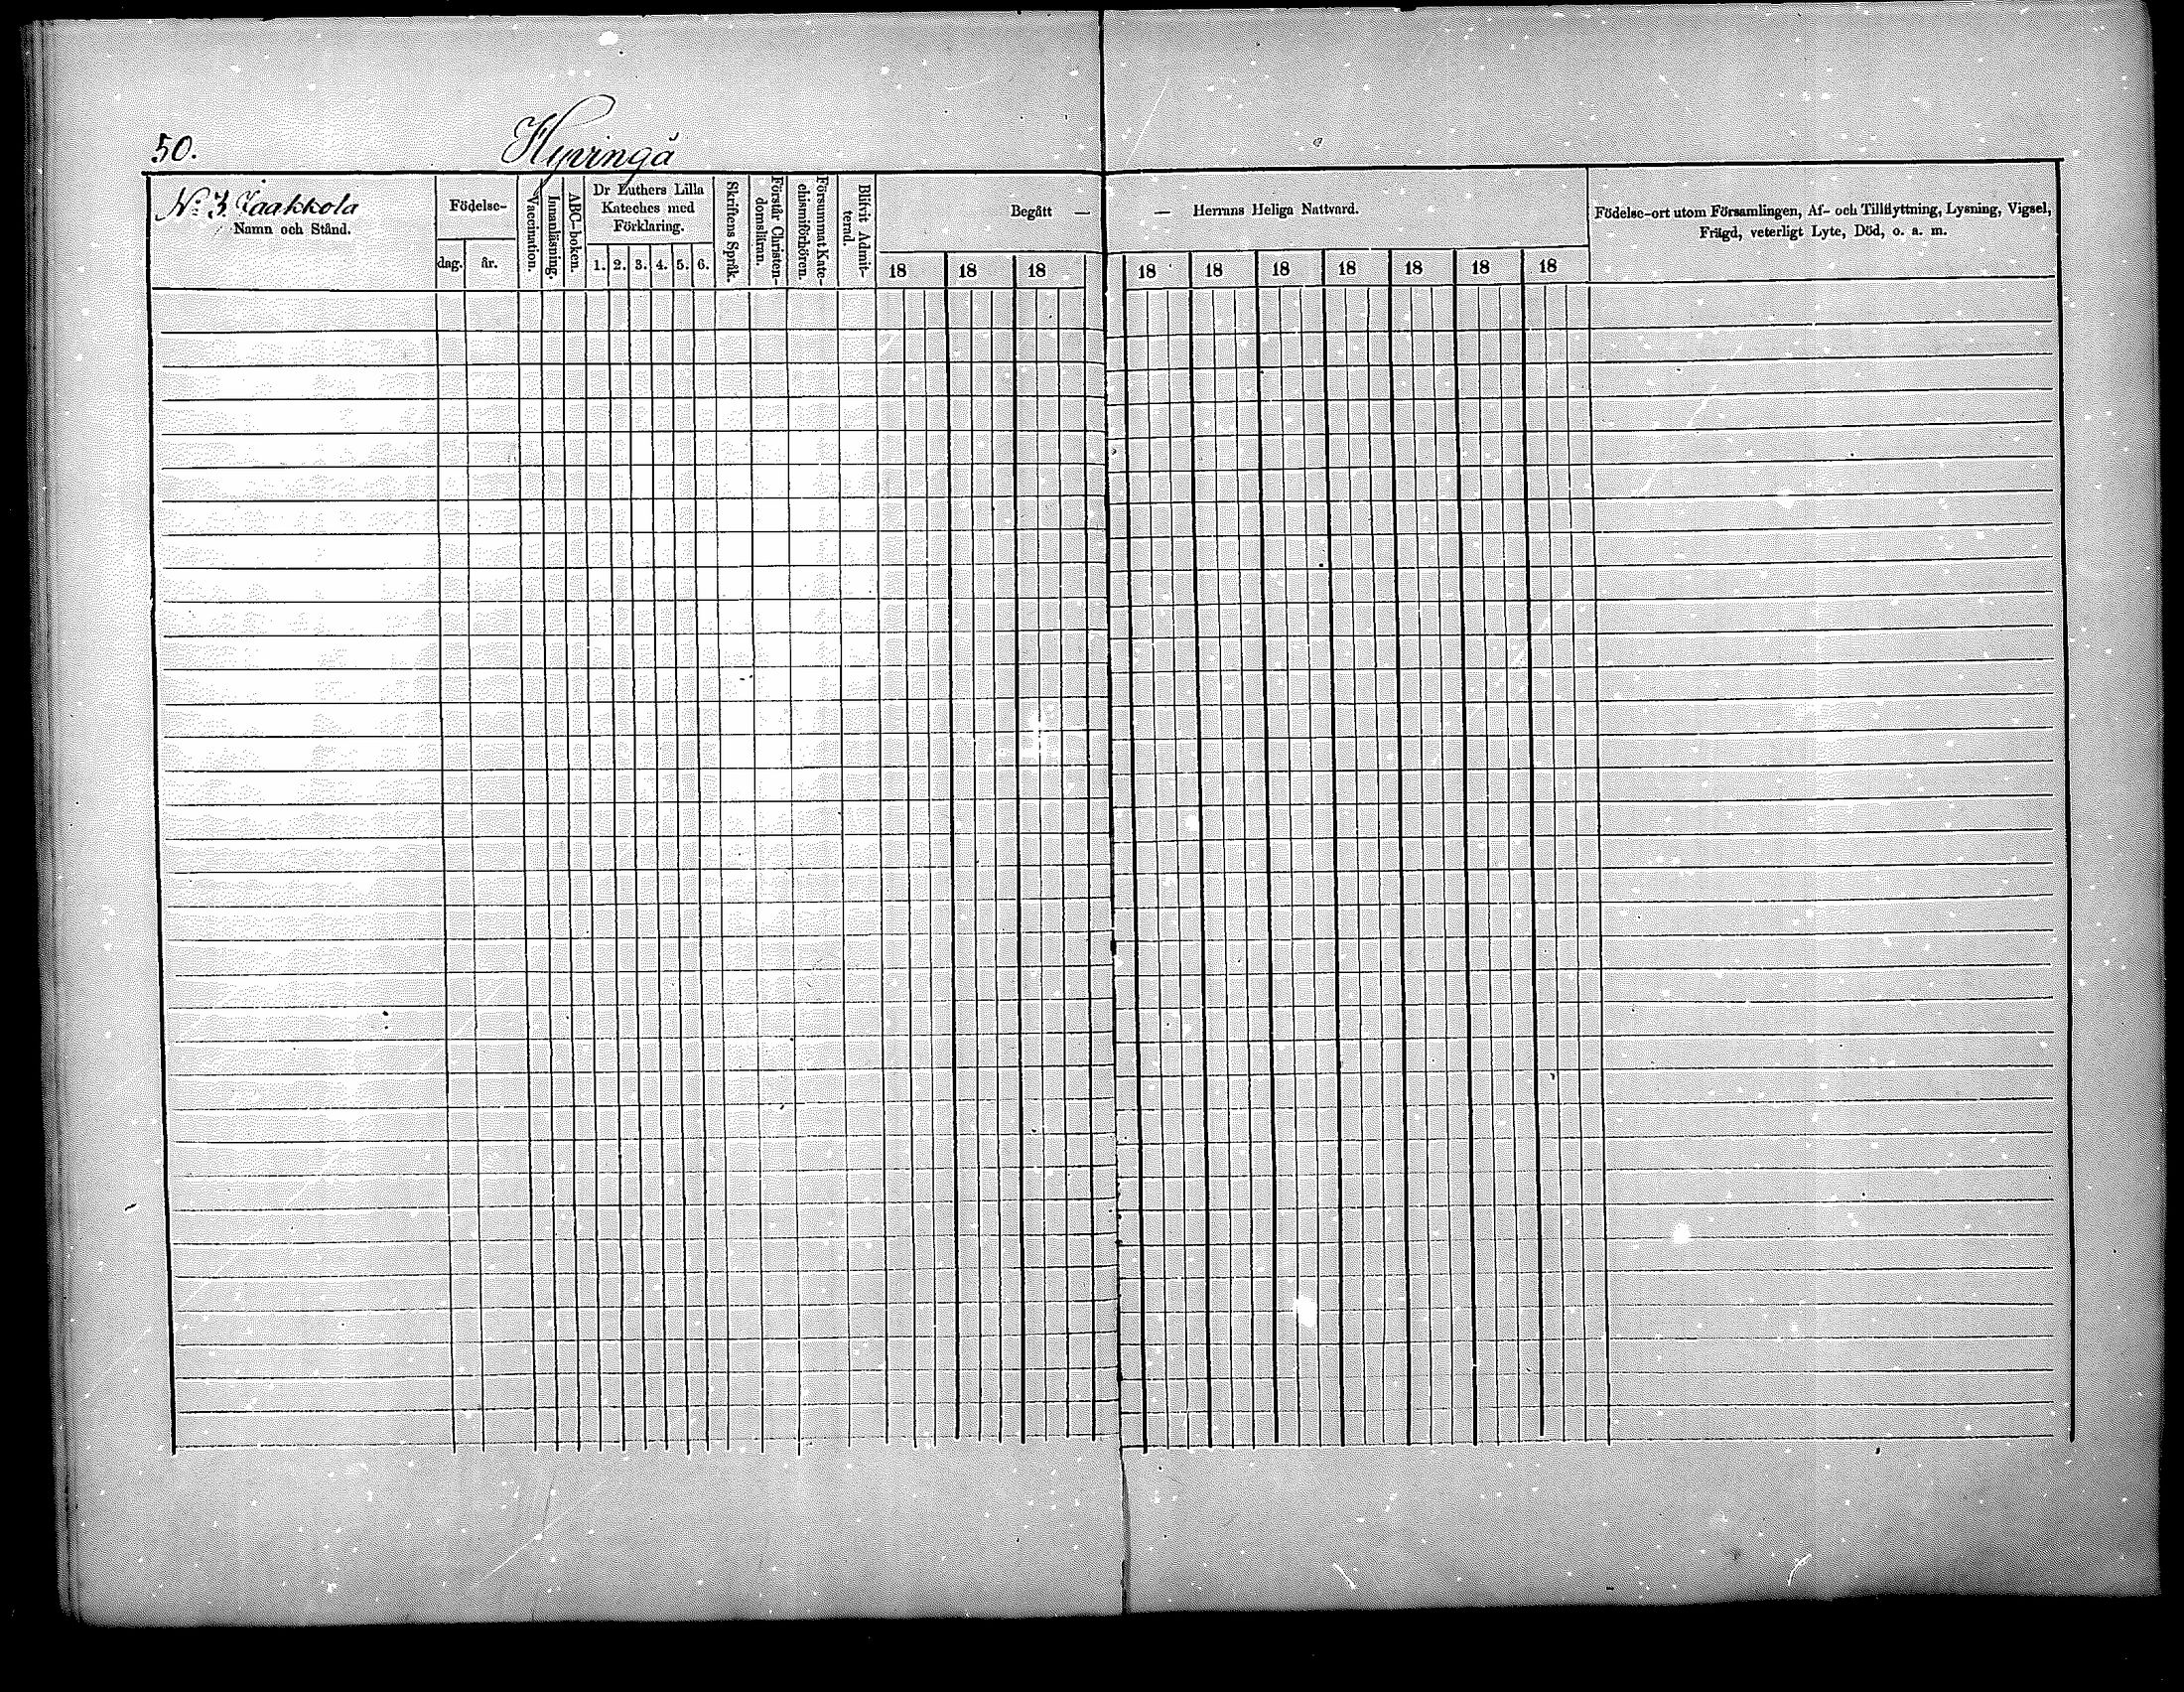 50.
Hyvingä
No: 3. Jaakkola
Namn och Stånd.
Födelse-
dag.
år.
Vaccination.
Innanläsning.
ABC-boken.
Dr Luthers Lilla
Kateches med
Förklaring.
1. 2. 3. 4. 5. 6.
Skriftens Språk.
Förstår Christen-
domsläran.
Försummat Kate-
chismiförhören.
Blifvit Admit-
terad.
Begått —
18 18 18
— Herrans Heliga Nattvard.
18 18 18 18 18 18 18
Födelse-ort utom Församlingen, Af- och Tillflyttning, Lysning, Vigsel,
Frägd, veterligt Lyte, Död, o. a. m.